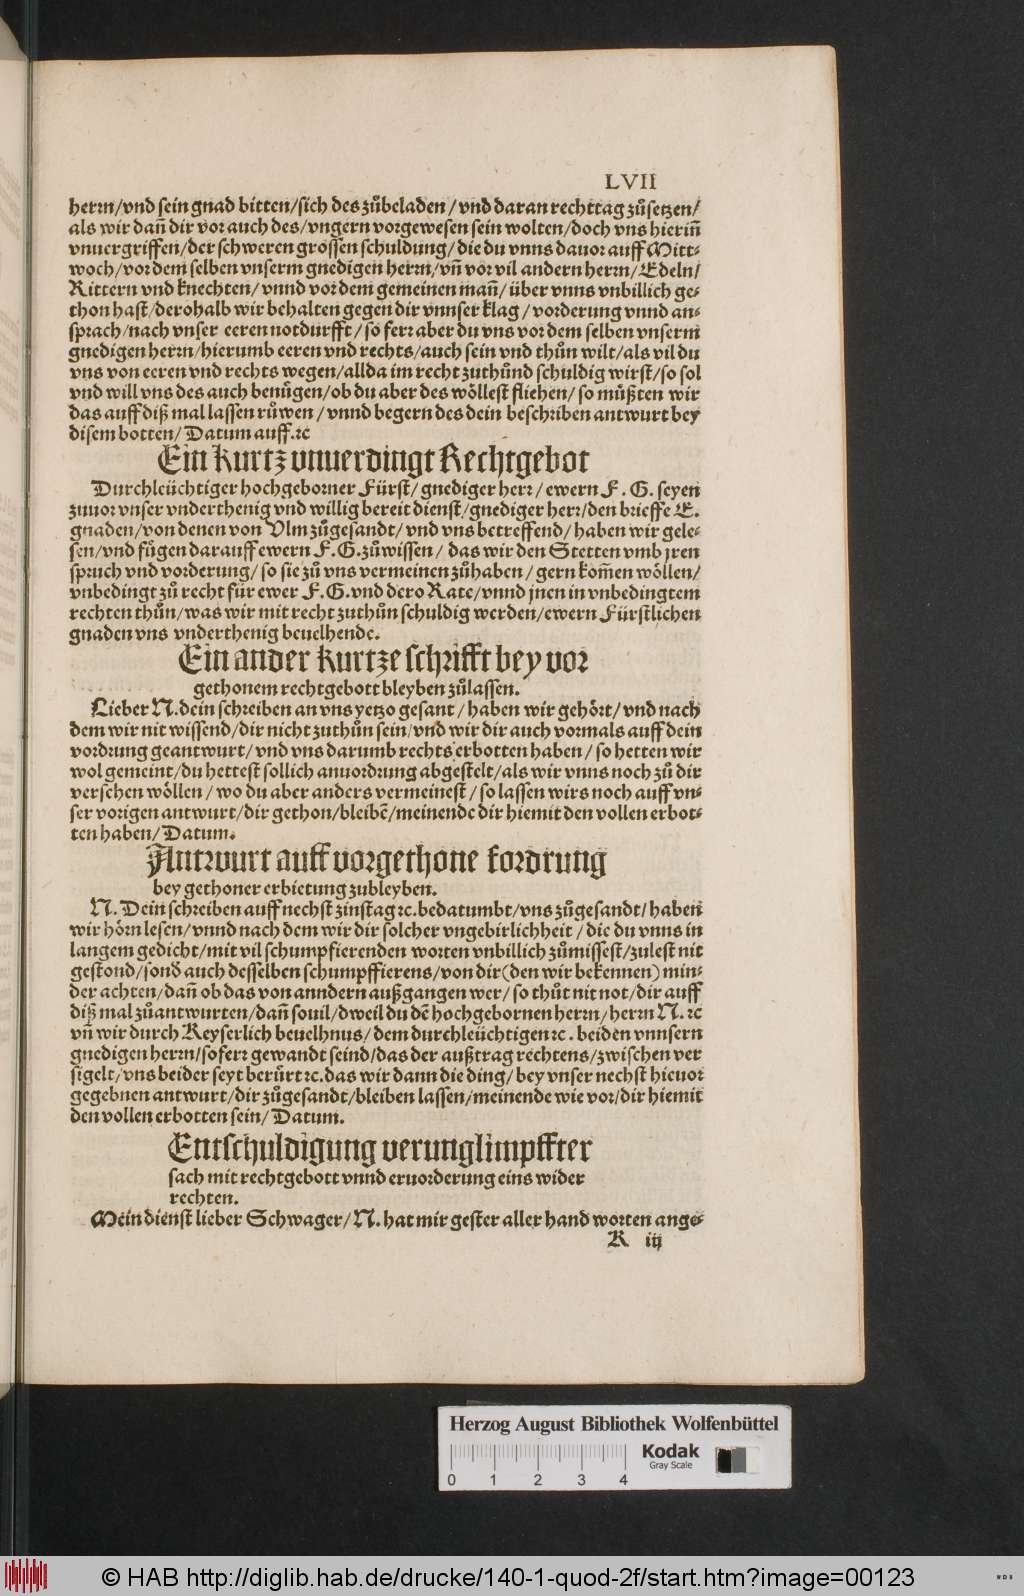 LVII
herrn/vnd sein gnad bitten/sich des zůbeladen/vnd daran rechttag zůsetzen/
als wir dañ dir vor auch des/vngern vorgewesen sein wolten/doch vns hieriñ
vnuergriffen/der schweren grossen schuldung/die du vnns dauor auff Mitt-
woch/vor dem selben vnserm gnedigen herrn/vñ vor vil andern herrn/Edeln/
Rittern vnd knechten/vnnd vor dem gemeinen mañ/über vnns vnbillich ge-
thon hast/derohalb wir behalten gegen dir vnnser klag/vorderung vnnd an-
sprach/nach vnser eeren notdurfft/so ferr aber du vns vor dem selben vnserm
gnedigen herrn/hierumb eeren vnd rechts/auch sein vnd thůn wilt/als vil du
vns von eeren vnd rechts wegen/allda im recht zuthůnd schuldig wirst/so sol
vnd will vns des auch benůgen/ob du aber des wöllest fliehen/so můßten wir
das auff diß mal lassen růwen/vnnd begern des dein beschriben antwurt bey
disem botten/Datum auff.ꝛc
Ein kurtz vnuerdingt Rechtgebot
Durchleüchtiger hochgeborner Fürst/gnediger herr/ewern F.G. seyen
zuuor vnser vnderthenig vnd willig bereit dienst/gnediger herr/den brieffe E.
gnaden/von denen von Vlm zůgesandt/vnd vns betreffend/haben wir gele-
sen/vnd fůgen darauff ewern F.G.zůwissen/das wir den Stetten vmb jren
spruch vnd vorderung/so sie zů vns vermeinen zůhaben/gern kom̄en wöllen/
vnbedingt zů recht für ewer F.G.vnd dero Rate/vnnd jnen in vnbedingtem
rechten thůn/was wir mit recht zuthůn schuldig werden/ewern Fürstlichen
gnaden vns vnderthenig beuelhende.
Ein ander kurtze schrifft bey vor
gethonem rechtgebott bleyben zůlassen.
Lieber N.dein schreiben an vns yetzo gesant/haben wir gehört/vnd nach
dem wir nit wissend/dir nicht zuthůn sein/vnd wir dir auch vormals auff dein
vordrung geantwurt/vnd vns darumb rechts erbotten haben/so hetten wir
wol gemeint/du hettest sollich anuordrung abgestelt/als wir vnns noch zů dir
versehen wöllen/wo du aber anders vermeinest/so lassen wirs noch auff vn-
ser vorigen antwurt/dir gethon/bleibẽ/meinende dir hiemit den vollen erbot-
ten haben/Datum.
Antwurt auff vorgethone fordrung
bey gethoner erbietung zubleyben.
N. Dein schreiben auff nechst zinstag ꝛc.bedatumbt/vns zůgesandt/haben
wir hörn lesen/vnnd nach dem wir dir solcher vngebirlichheit/die du vnns in
langem gedicht/mit vil schumpfierenden worten vnbillich zůmissest/zulest nit
gestond/sonď auch desselben schumpffierens/von dir(den wir bekennen)min-
der achten/dañ ob das von anndern außgangen wer/so thůt nit not/dir auff
diß mal zůantwurten/dañ souil/dweil du dẽ hochgebornen herrn/herrn N.ꝛc
vñ wir durch Keyserlich beuelhnus/dem durchleüchtigen ꝛc. beiden vnnsern
gnedigen herrn/soferr gewandt seind/das der außtrag rechtens/zwischen ver
sigelt/vns beider seyt berürt ꝛc.das wir dann die ding/bey vnser nechst hieuor
gegebnen antwurt/dir zůgesandt/bleiben lassen/meinende wie vor/dir hiemit
den vollen erbotten sein/Datum.
Entschuldigung verunglimpffter
sach mit rechtgebott vnnd eruorderung eins wider
rechten.
Mein dienst lieber Schwager/N. hat mir gester aller hand worten ange-
K iij
Herzog August Bibliothek Wolfenbüttel
Kodak
Gray Scale
0 1 2 3 4
© HAB http://diglib.hab.de/drucke/140-1-quod-2f/start.htm?image=00123